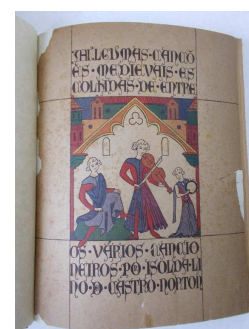 ALGUMAS·CANCÕ
ES·MEDIEVAIS·ES
COLHIDAS·DE·ENTRE
OS·VÁRIOS·CANCIO
NEIROS·POR·ISOLDA·LI
NO·D·CASTRO·NORTON